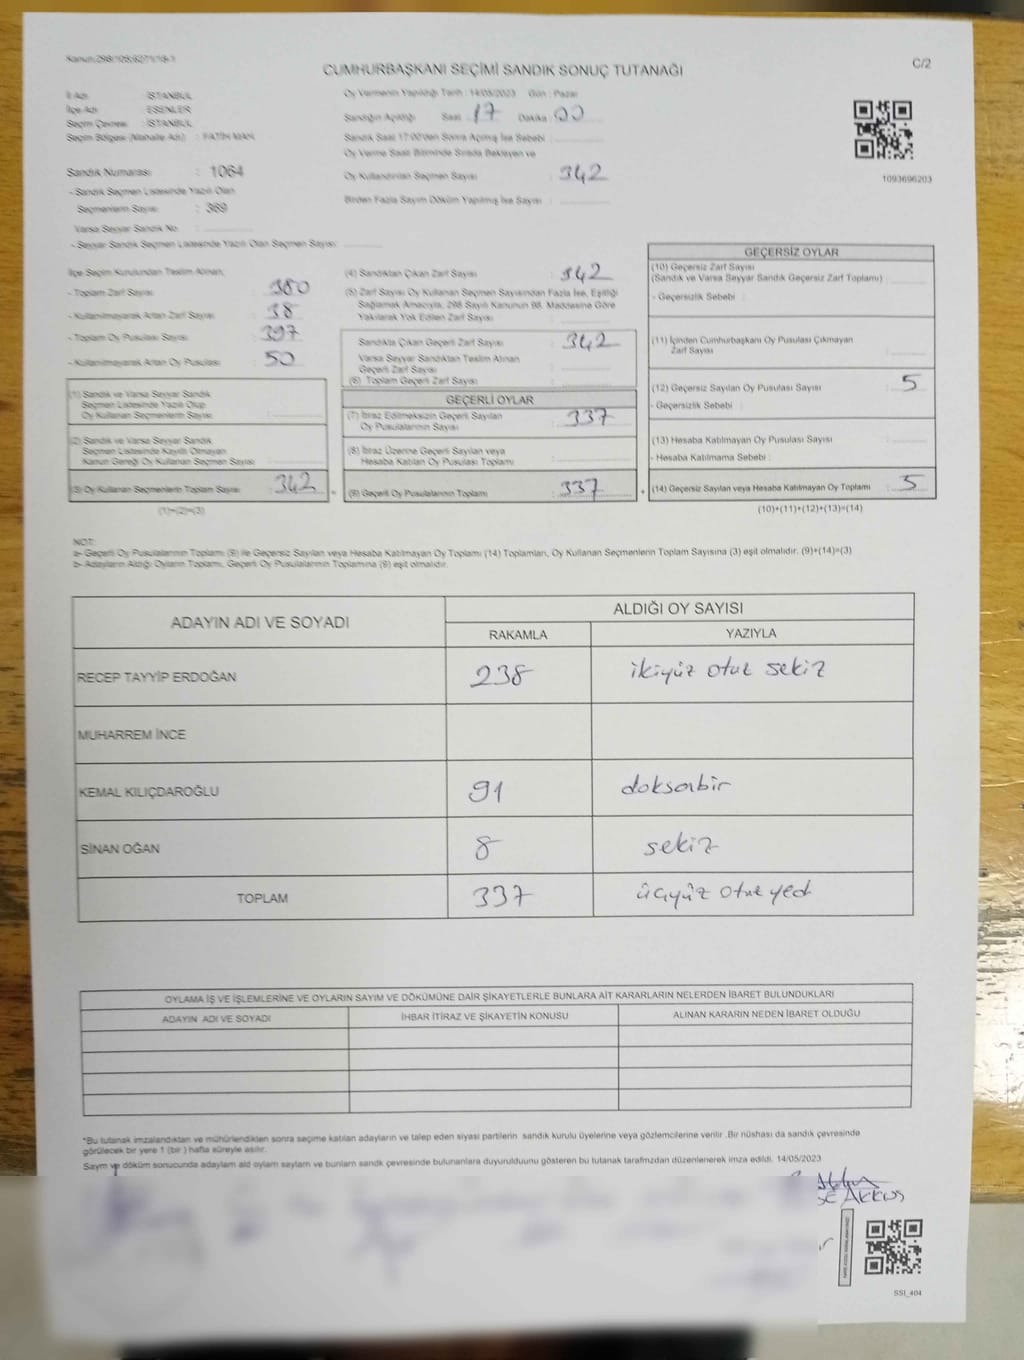 Kanun:298/105;6271/18-1
C/2
CUMHURBAŞKANI SEÇİMİ SANDIK SONUÇ TUTANAĞI
İl Adı : İSTANBUL
İlçe Adı : ESENLER
Seçim Çevresi : İSTANBUL
Seçim Bölgesi (Mahalle Adı) : FATİH MAH.
Sandık Numarası : 1064
- Sandık Seçmen Listesinde Yazılı Olan
Seçmenlerin Sayısı : 369
Varsa Seyyar Sandık No :
- Seyyar Sandık Seçmen Listesinde Yazılı Olan Seçmen Sayısı:
Oy Vermenin Yapıldığı Tarih : 14/05/2023 Gün : Pazar
Sandığın Açıldığı Saat : 17 Dakika : 00
Sandık Saat 17:00'den Sonra Açılmış İse Sebebi :
Oy Verme Saati Bitiminde Sırada Bekleyen ve
Oy Kullandırılan Seçmen Sayısı : 342
Birden Fazla Sayım Döküm Yapılmış İse Sayısı :
1093696203
İlçe Seçim Kurulundan Teslim Alınan;
- Toplam Zarf Sayısı : 380
- Kullanılmayarak Artan Zarf Sayısı : 38
- Toplam Oy Pusulası Sayısı : 397
- Kullanılmayarak Artan Oy Pusulası : 50
(1) Sandık ve Varsa Seyyar Sandık
Seçmen Listesinde Yazılı Olup
Oy Kullanan Seçmenlerin Sayısı :
(2) Sandık ve Varsa Seyyar Sandık
Seçmen Listesinde Kayıtlı Olmayan
Kanun Gereği Oy Kullanan Seçmen Sayısı :
(3) Oy Kullanan Seçmenlerin Toplam Sayısı : 342
(1)+(2)=(3)
(4) Sandıktan Çıkan Zarf Sayısı : 342
(5) Zarf Sayısı Oy Kullanan Seçmen Sayısından Fazla İse, Eşitliği
Sağlamak Amacıyla, 298 Sayılı Kanunun 98. Maddesine Göre
Yakılarak Yok Edilen Zarf Sayısı :
Sandıkta Çıkan Geçerli Zarf Sayısı : 342
Varsa Seyyar Sandıktan Teslim Alınan
Geçerli Zarf Sayısı :
(6) Toplam Geçerli Zarf Sayısı :
GEÇERLİ OYLAR
(7) İtiraz Edilmeksizin Geçerli Sayılan
Oy Pusulalarının Sayısı : 337
(8) İtiraz Üzerine Geçerli Sayılan veya
Hesaba Katılan Oy Pusulası Toplamı :
(9) Geçerli Oy Pusulalarının Toplamı : 337
GEÇERSİZ OYLAR
(10) Geçersiz Zarf Sayısı
(Sandık ve Varsa Seyyar Sandık Geçersiz Zarf Toplamı) :
- Geçersizlik Sebebi :
(11) İçinden Cumhurbaşkanı Oy Pusulası Çıkmayan
Zarf Sayısı :
(12) Geçersiz Sayılan Oy Pusulası Sayısı : 5
- Geçersizlik Sebebi :
(13) Hesaba Katılmayan Oy Pusulası Sayısı :
- Hesaba Katılmama Sebebi :
(14) Geçersiz Sayılan veya Hesaba Katılmayan Oy Toplamı : 5
(10)+(11)+(12)+(13)=(14)
NOT:
a- Geçerli Oy Pusulalarının Toplamı (9) ile Geçersiz Sayılan veya Hesaba Katılmayan Oy Toplamı (14) Toplamları, Oy Kullanan Seçmenlerin Toplam Sayısına (3) eşit olmalıdır. (9)+(14)=(3)
b- Adayların Aldığı Oyların Toplamı, Geçerli Oy Pusulalarının Toplamına (9) eşit olmalıdır.
ADAYIN ADI VE SOYADI
ALDIĞI OY SAYISI
RAKAMLA YAZIYLA
RECEP TAYYİP ERDOĞAN 238 ikiyüz otuz sekiz
MUHARREM İNCE
KEMAL KILIÇDAROĞLU 91 doksanbir
SİNAN OĞAN 8 sekiz
TOPLAM 337 üçyüz otuz yedi
OYLAMA İŞ VE İŞLEMLERİNE VE OYLARIN SAYIM VE DÖKÜMÜNE DAİR ŞİKAYETLERLE BUNLARA AİT KARARLARIN NELERDEN İBARET BULUNDUKLARI
ADAYIN ADI VE SOYADI İHBAR İTİRAZ VE ŞİKAYETİN KONUSU ALINAN KARARIN NEDEN İBARET OLDUĞU
*Bu tutanak imzalandıktan ve mühürlendikten sonra seçime katılan adayların ve talep eden siyasi partilerin sandık kurulu üyelerine veya gözlemcilerine verilir .Bir nüshası da sandık çevresinde
görülecek bir yere 1 (bir ) hafta süreyle asılır.
Sayım ve döküm sonucunda adayların ald oyların sayların ve bunların sandık çevresinde bulunanlara duyurulduunu gösteren bu tutanak tarafmzdan düzenlenerek imza edildi. 14/05/2023
AKKUŞ
SSI_404